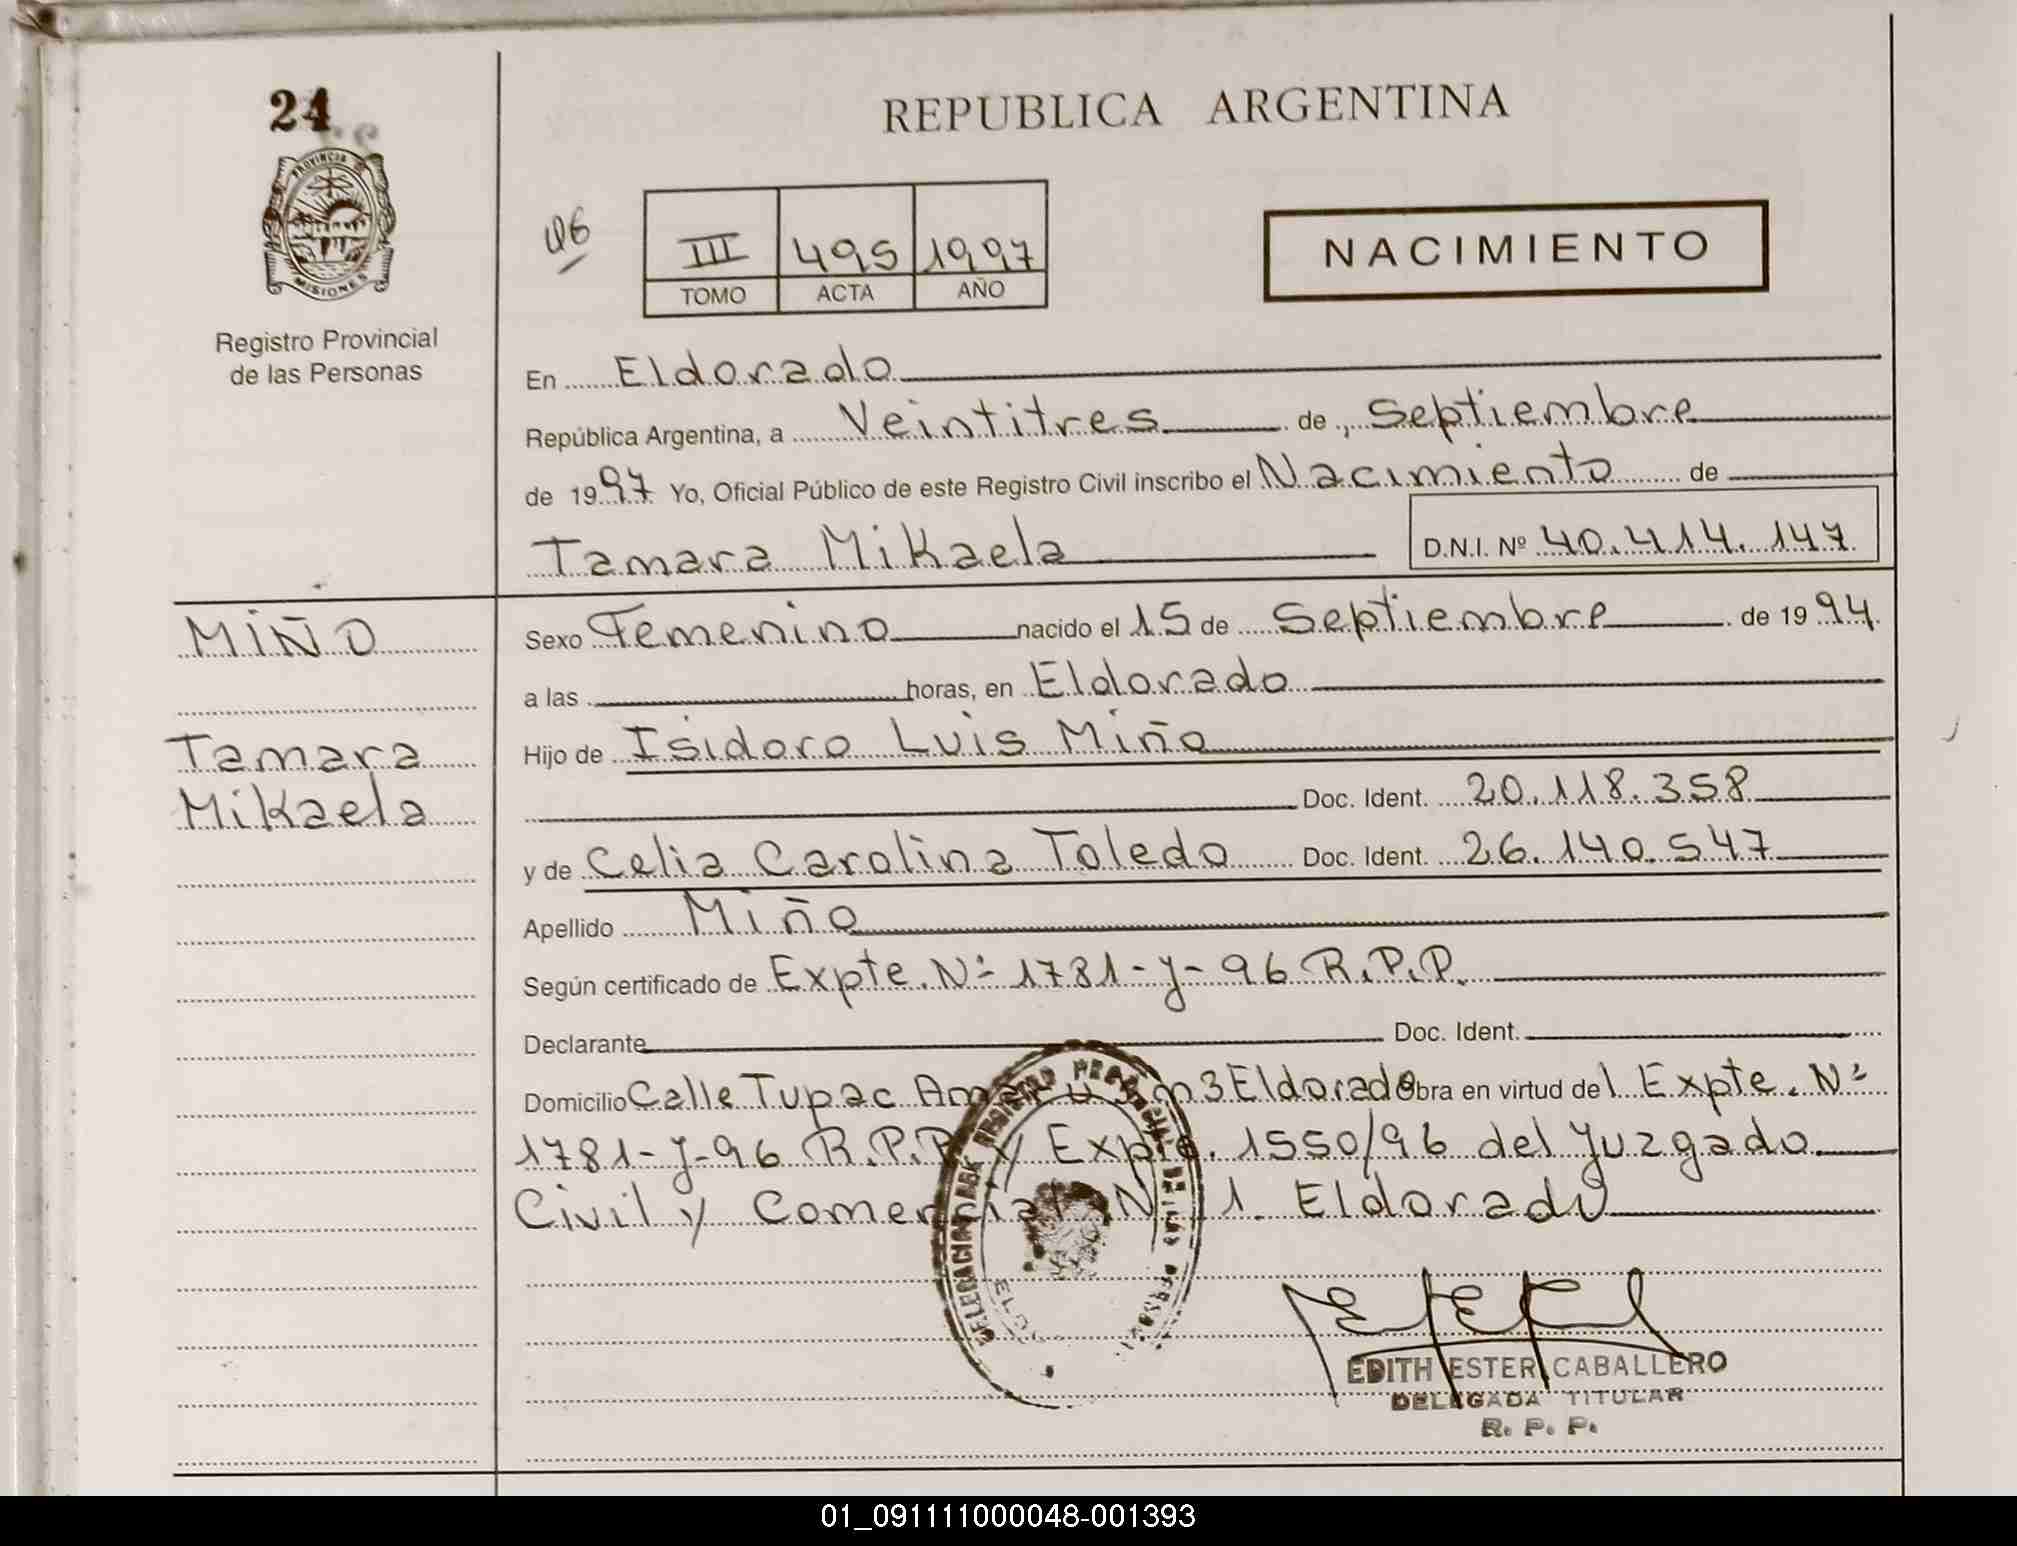 24
REPUBLICA ARGENTINA
PROVINCIA DE
MISIONES
Registro Provincial
de las Personas
III 495 1997
TOMO ACTA AÑO
NACIMIENTO
En Eldorado
República Argentina, a Veintitres de Septiembre
de 1997 Yo, Oficial Público de este Registro Civil inscribo el Nacimiento de
Tamara Mikaela D.N.I. Nº 40.414.147
MIÑO
Tamara
Mikaela
Sexo Femenino nacido el 15 de Septiembre de 1994
a las horas, en Eldorado
Hijo de Isidoro Luis Miño
Doc. Ident. 20.118.358
y de Celia Carolina Toledo Doc. Ident. 26.140.547
Apellido Miño
Según certificado de Expte. Nº 1781-J-96 R.P.P.
Declarante Doc. Ident.
Domicilio Calle Tupac Amaru Km 3 Eldorado Obra en virtud del Expte. Nº
1781-J-96 R.P.P. y Expte. 1550/96 del Juzgado
Civil y Comercial Nº 1. Eldorado
EDITH ESTER CABALLERO
DELEGADA TITULAR
R. P. P.
01_091111000048-001393